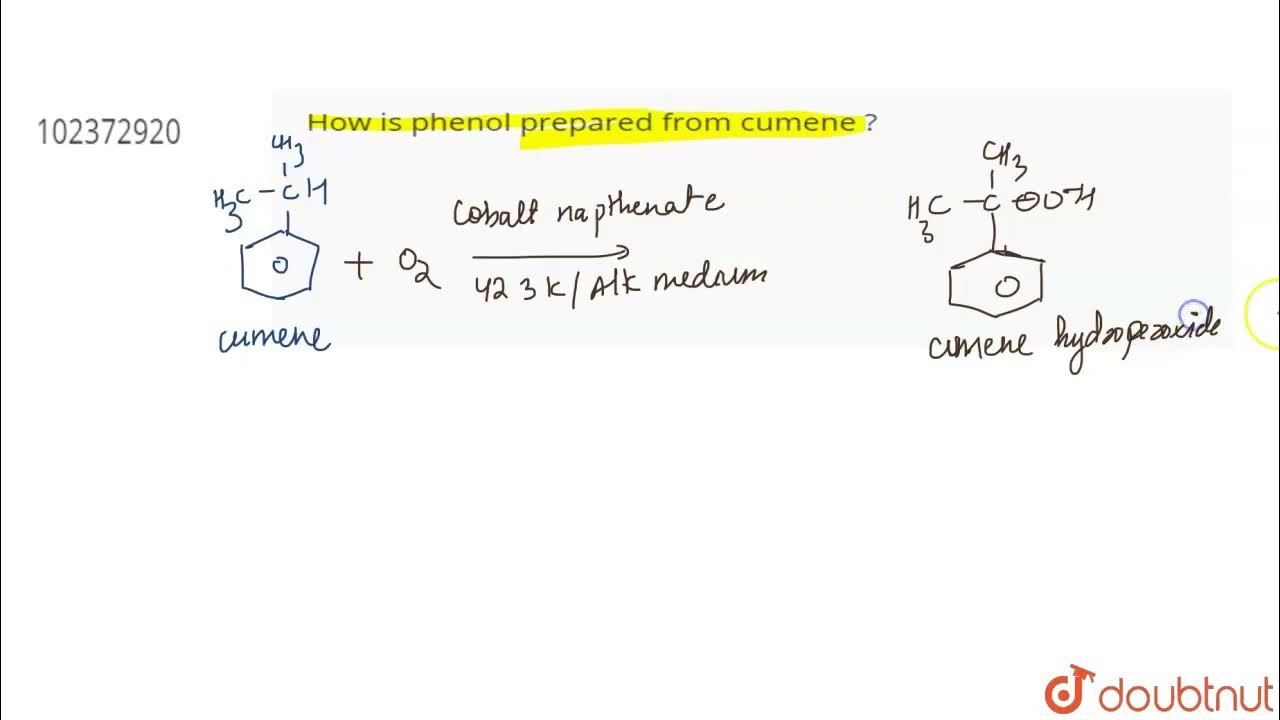 102372920
How is phenol prepared from cumene ?
CH3
H3C - C H
O
+ O2
cobalt napthenate
423 K / Alk medium
cumene
CH3
H3C - C - OOH
O
cumene hydroperoxide
doubtnut